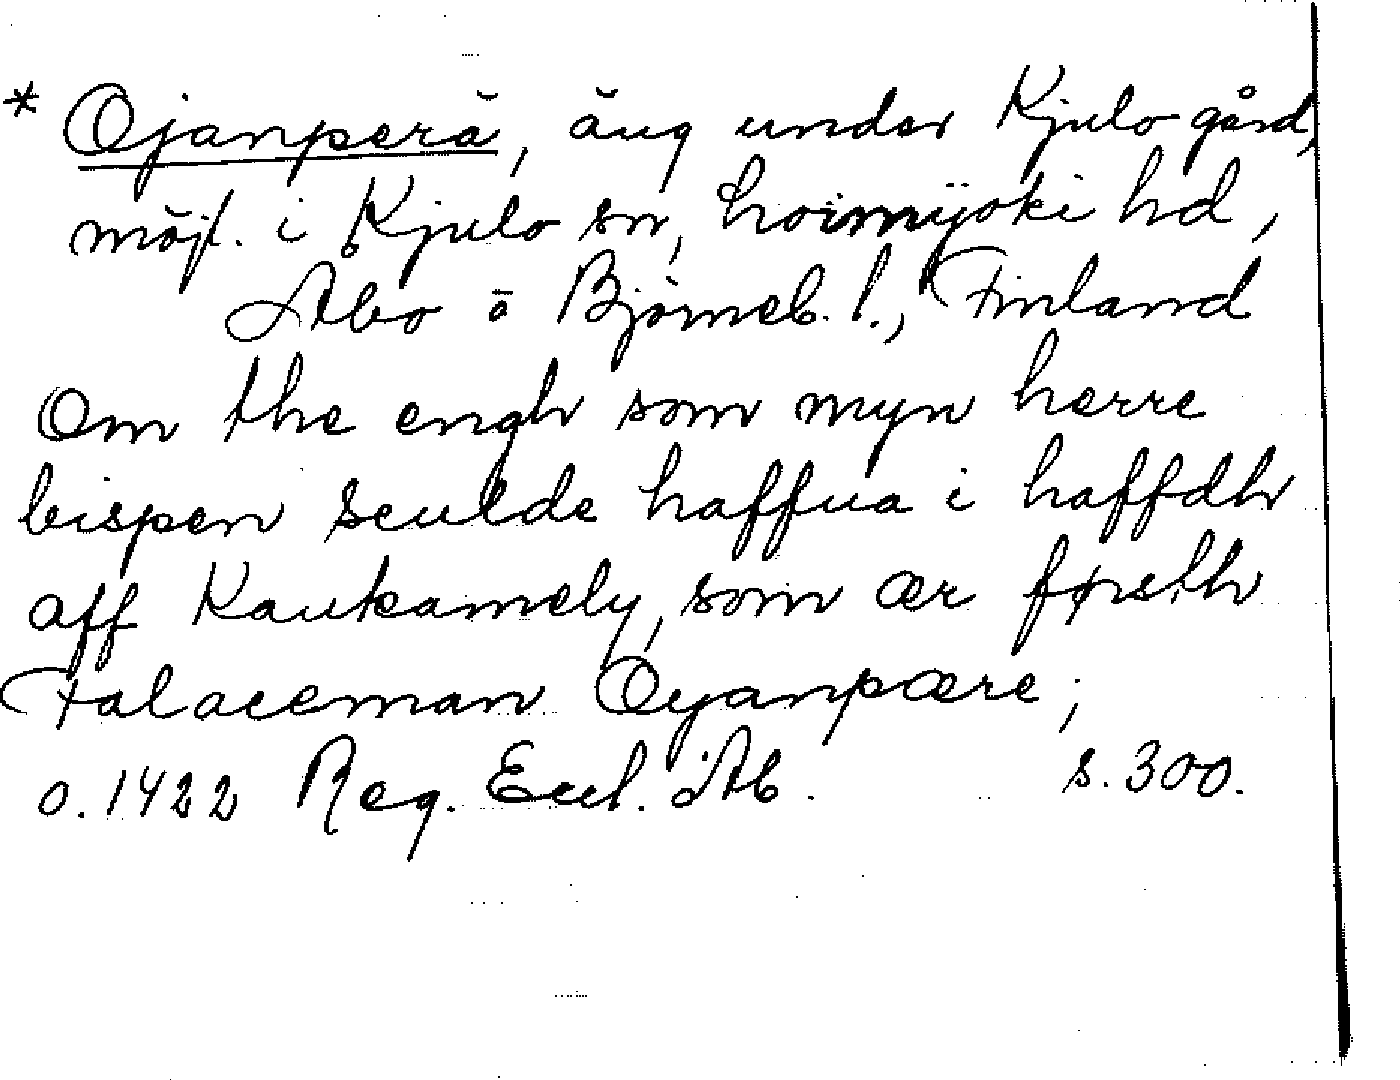 * Ojanperä, äng under Kjulo gård,
möjl. i Kjulo sn, Loimijoki hd,
Åbo o Björneb. l., Finland
Om the engh som myn herre
bispen sculde haffua i haffdh
aff Kaukamely, som ær førsth
Falaceman Oyanpære;
o. 1422 Reg. Eccl. Ab. s. 300.